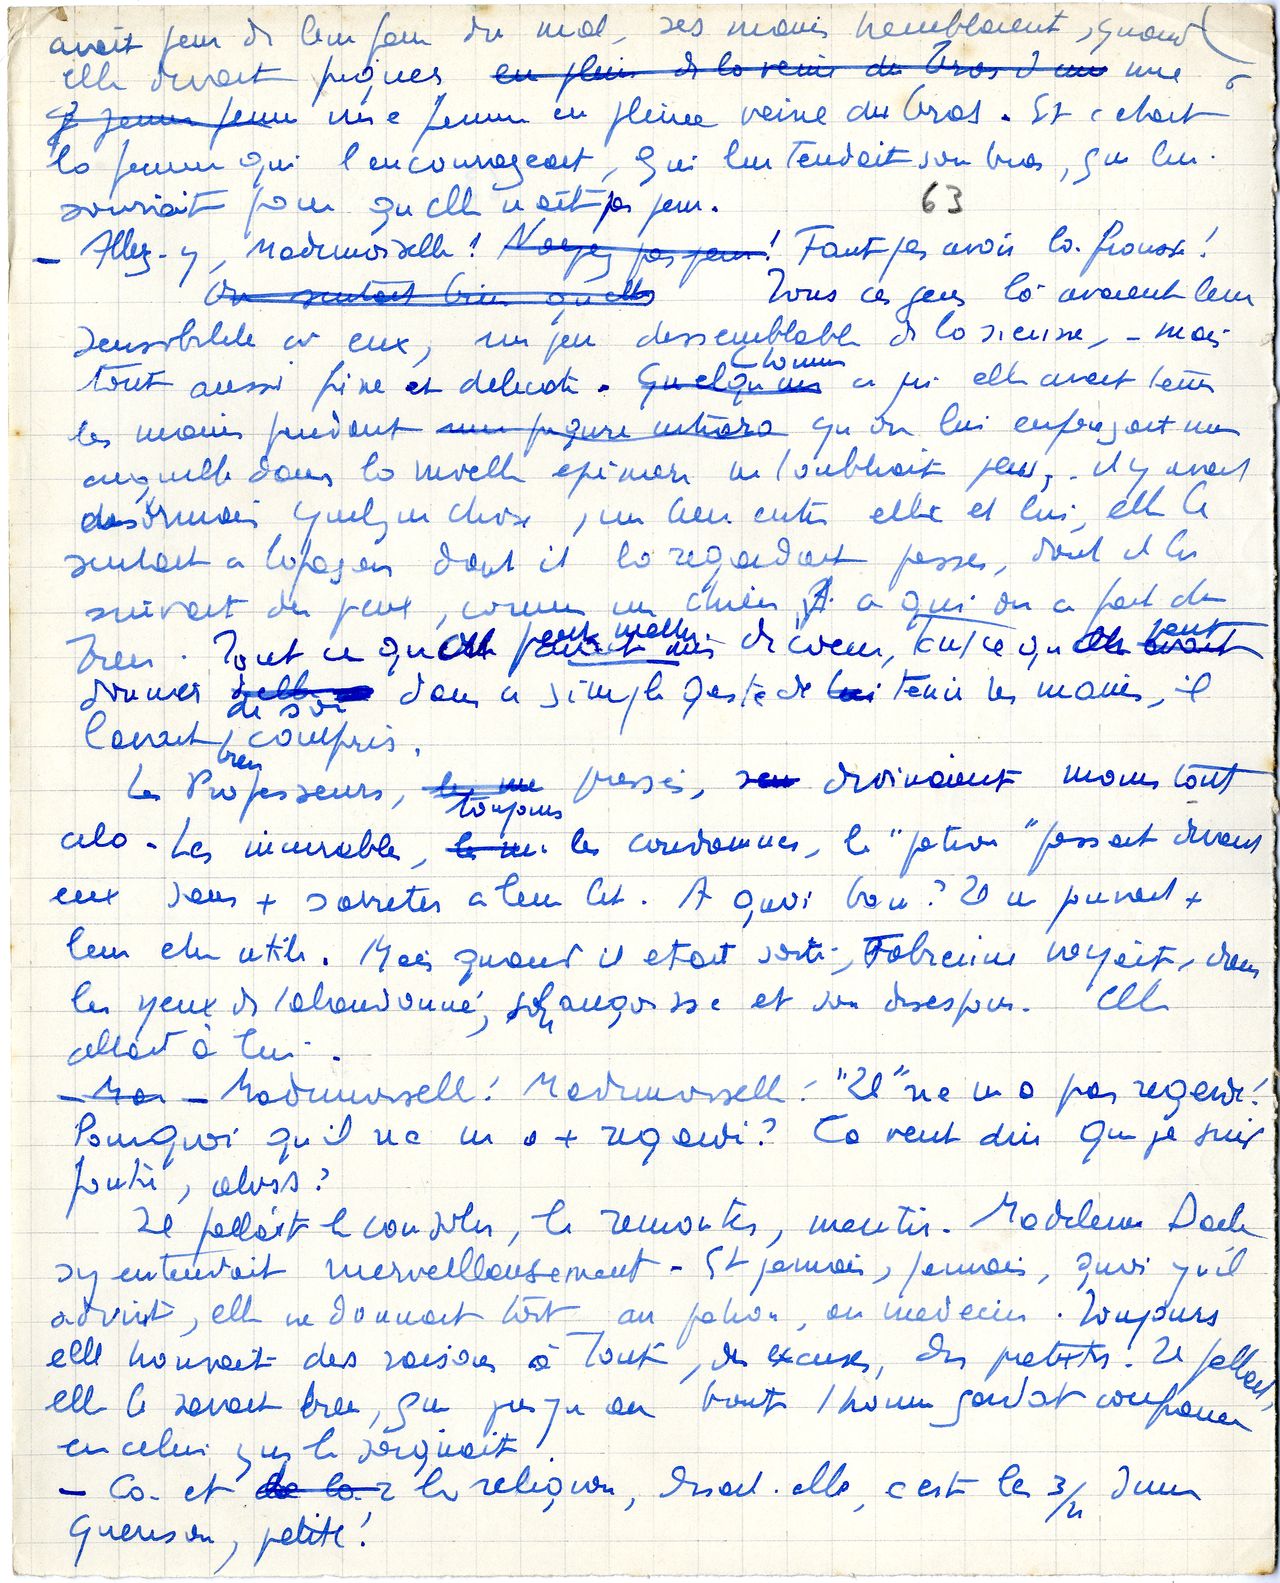 avait peur de leur faire du mal, ses mains tremblaient, quand
elle devait piquer en plein de la veine du bras d'une une
jeune femme une femme en pleine veine du bras. Et c'était
la femme qui l'encourageait, qui lui tendait son bras, qui lui
souriait pour qu'elle n'ait pas peur.
63
– Allez-y, Mademoiselle! N'ayez pas peur! Faut pas avoir la frousse!
On sentait bien qu'elle Tous ces gens là avaient leur
sensibilité à eux, un peu dissemblable de la sienne, – mais
tout aussi fine et délicate. Quelqu'un L'homme à qui elle avait tenu
les mains pendant une piqure intrara qu'on lui enfonçait une
aiguille dans la moelle épinière ne l'oubliait plus, il y avait
désormais quelque chose, un lien entre elle et lui, elle le
sentait à la façon dont il la regardait passer, dont il la
suivait des yeux, comme un chien à qui on a fait du
bien. Tout ce qu'on peut mettre de coeur, tout ce qu'on peut
donner de soi dans ce simple geste de lui tenir les mains, il
l'avait bien compris.
Les Professeurs, toujours pressés, devinaient moins tout
cela. Les incurables, les condamnés, le "patron" passait devant
eux sans + s'arrêter à leur lit. A quoi bon? Il ne pouvait +
leur être utile. Mais quand il était sorti, Fabienne voyait, dans
les yeux de l'abandonné, son angoisse et son désespoir. Elle
allait à lui.
– Ma – Mademoiselle! Mademoiselle! "Il" ne m'a pas regardé!
Pourquoi qu'il ne m'a + regardé? Ça veut dire que je suis
foutu, alors?
Il fallait le consoler, le remonter, mentir. Madeleine
s'y entendait merveilleusement. Et jamais, jamais, quoi qu'il
advint, elle ne donnait tort au patron, au médecin. Toujours
elle trouvait des raisons à tout, des excuses, des prétextes. Il fallait,
elle le savait bien, que jusqu'au bout l'homme gardât confiance
en celui qui le soignait.
– Ça et de la la religion, disait-elle, c'est les 3/4 d'une
guérison, petite!